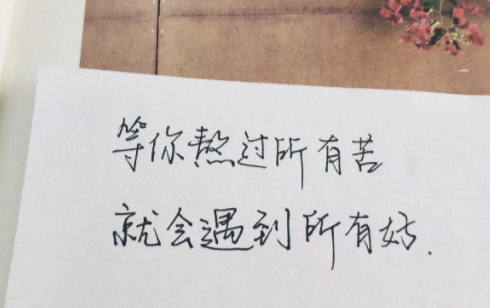 等你熬过所有苦
就会遇到所有好.